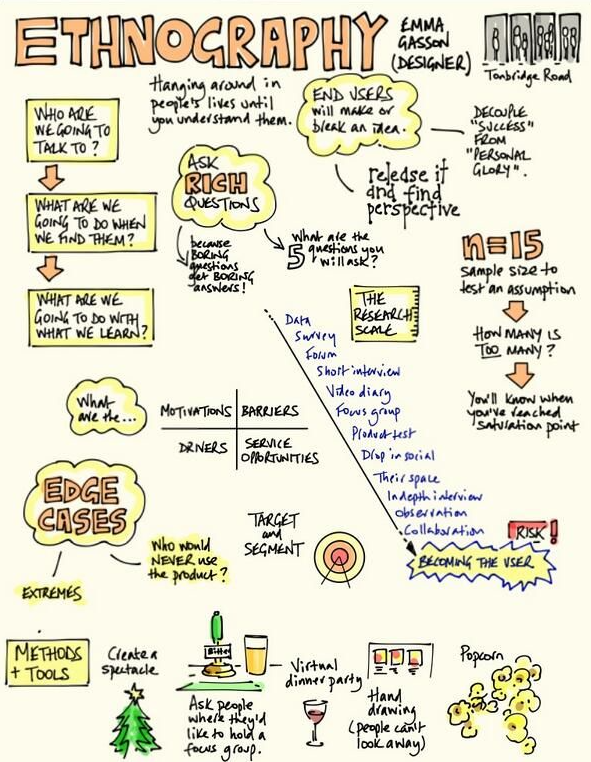 ETHNOGRAPHY
EMMA
GASSON
(DESIGNER)
Tonbridge Road
Hanging around in
people's lives until
you understand them.
END USERS
will make or
break an idea.
DECOUPLE
"SUCCESS"
FROM
"PERSONAL
GLORY".
release it
and find
perspective
WHO ARE
WE GOING TO
TALK TO?
WHAT ARE WE
GOING TO DO WHEN
WE FIND THEM?
WHAT ARE WE
GOING TO DO WITH
WHAT WE LEARN?
ASK
RICH
QUESTIONS
because
BORING
questions
get BORING
answers!
What are the
5 questions you
will ask?
n=15
sample size to
test an assumption
HOW MANY IS
TOO MANY?
You'll know when
you've reached
saturation point
THE
RESEARCH
SCALE
Data
Survey
Forum
Short interview
Video diary
Focus group
Product test
Drop in social
Their space
Indepth interview
Observation
Collaboration
RISK!
BECOMING THE USER
What
are the...
MOTIVATIONS BARRIERS
DRIVERS SERVICE
OPPORTUNITIES
EDGE
CASES
EXTREMES
Who would
NEVER use
the product?
TARGET
and
SEGMENT
METHODS
+ TOOLS
Create a
spectacle
Bitter
Ask people
where they'd
like to hold a
focus group.
Virtual
dinner party
Hand
drawing
(people can't
look away)
Popcorn